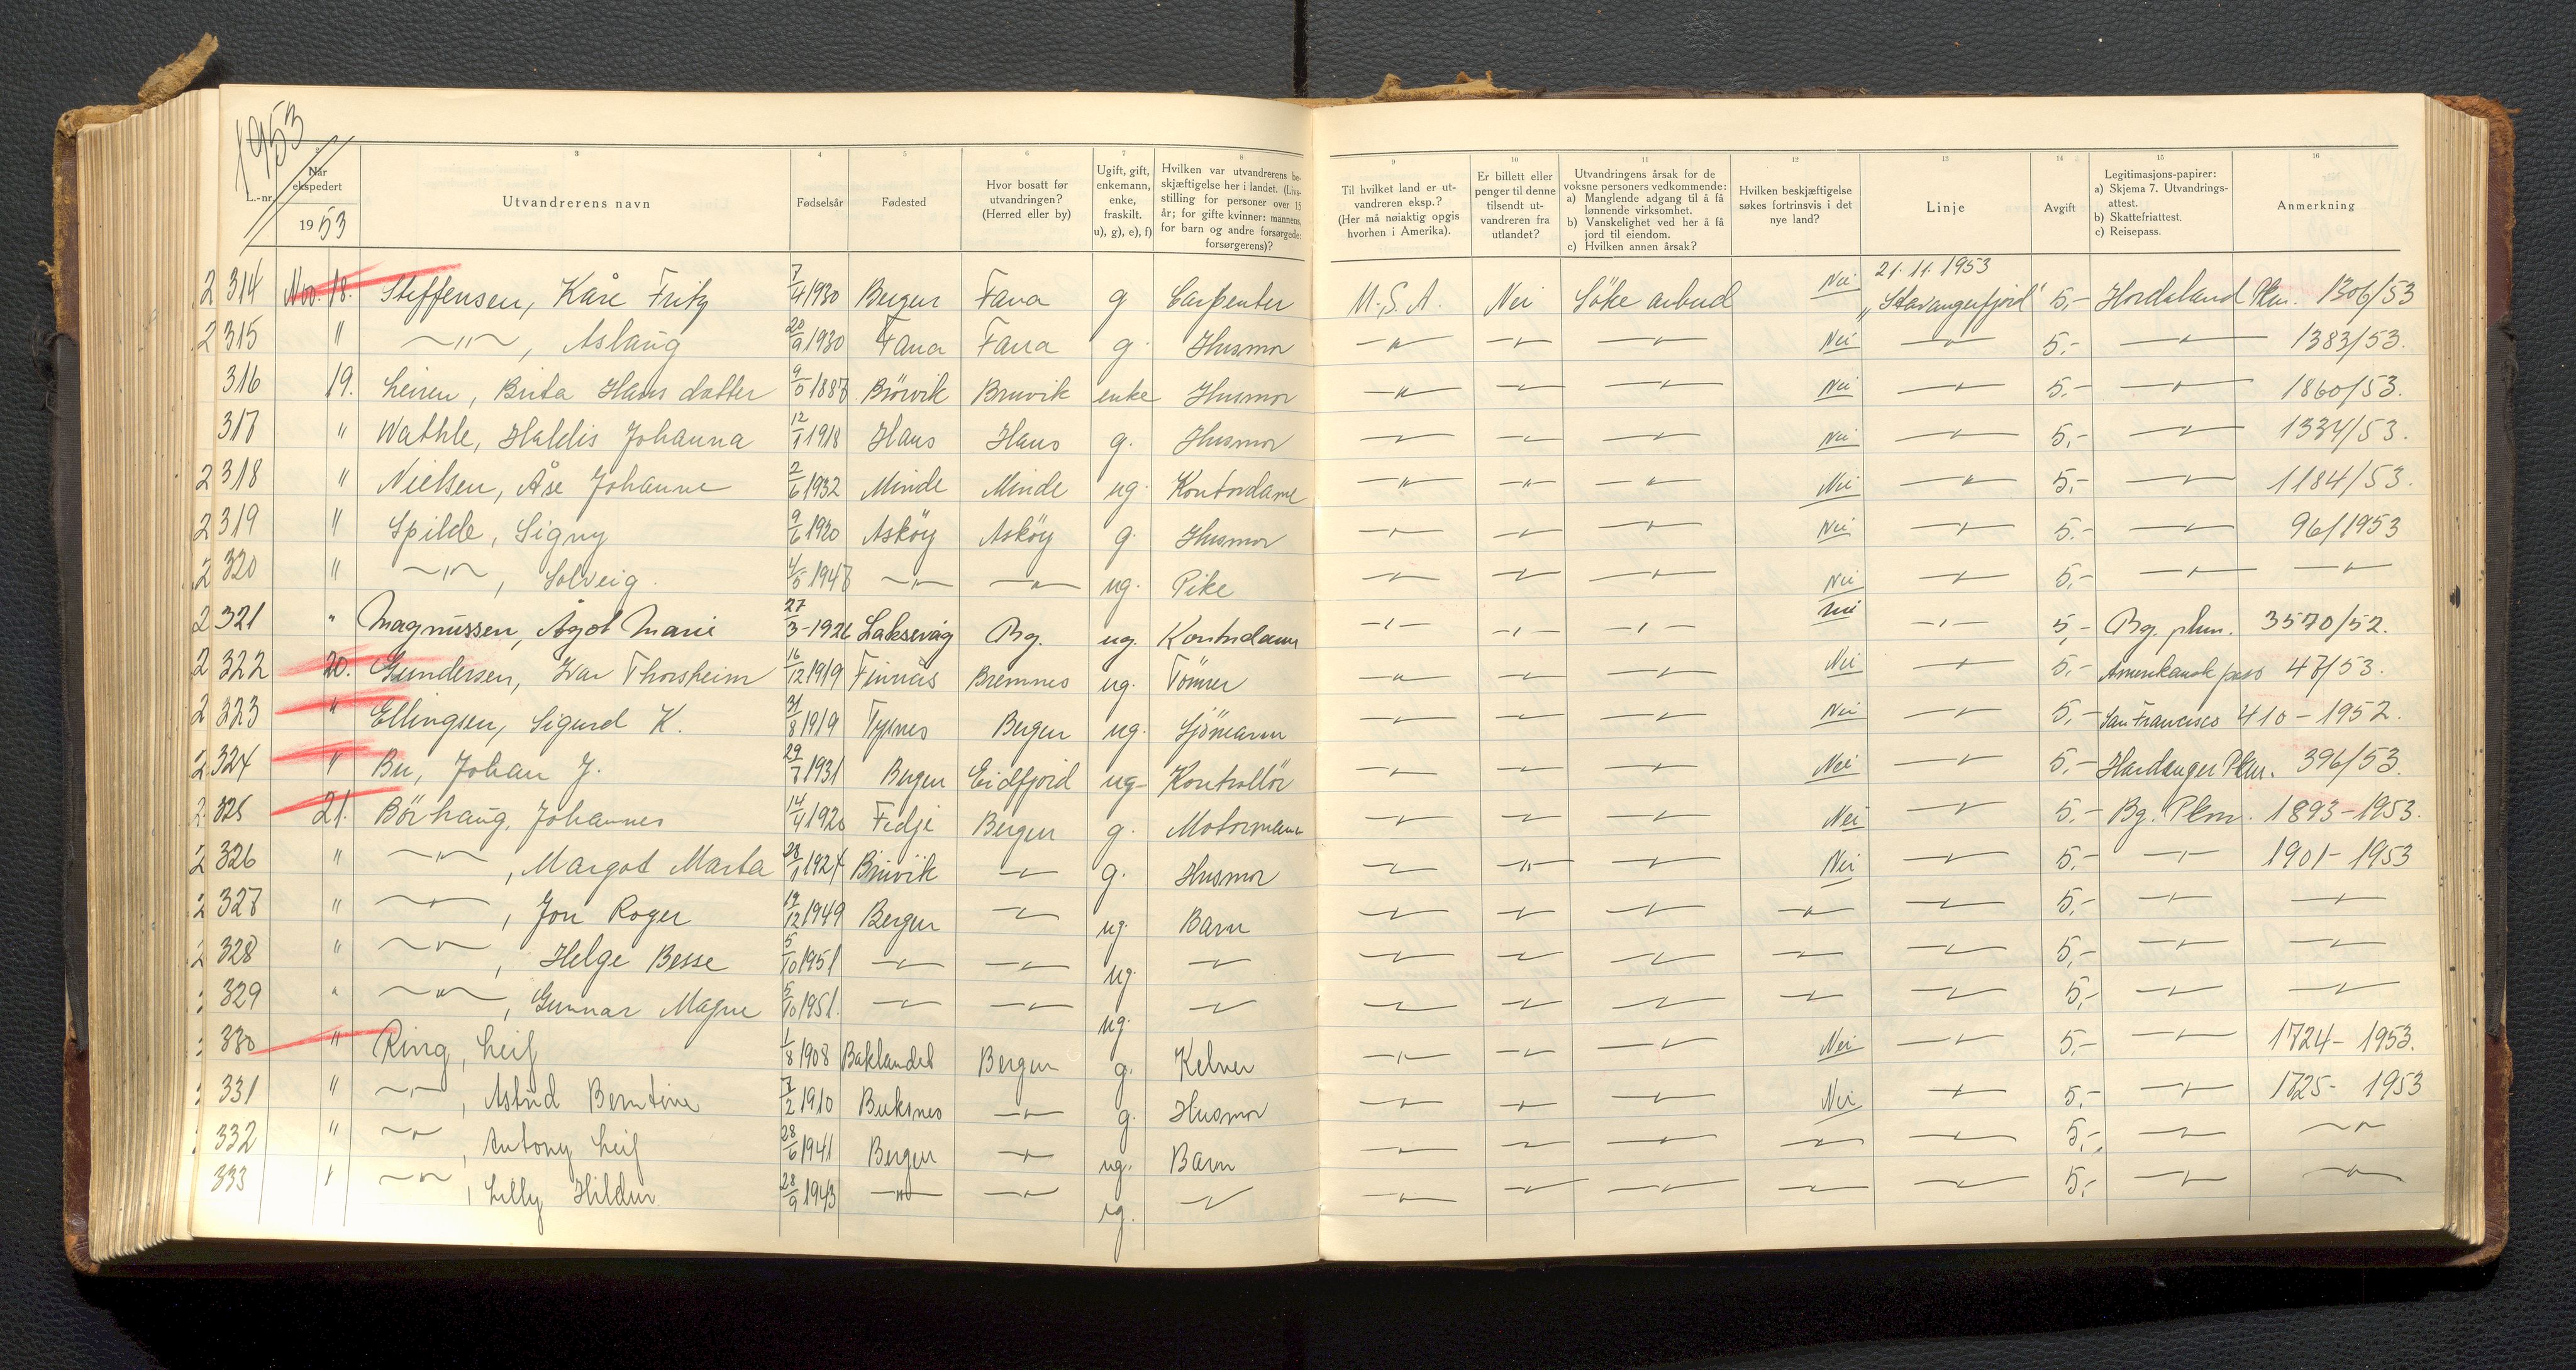 1953
3 4 5 6 7 8 9 10 11 12 13 14 15 16
L.-nr. Når ekspedert 1953 Utvandrerens navn Fødselsår Fødested Hvor bosatt før utvandringen? (Herred eller by) Ugift, gift, enkemann, enke, fraskilt. u), g), e), f) Hvilken var utvandrerens beskjæftigelse her i landet. (Livsstilling for personer over 15 år; for gifte kvinner: mannens, for barn og andre forsørgede: forsørgerens)? Til hvilket land er utvandreren eksp.? (Her må nøiaktig opgis hvorhen i Amerika). Er billett eller penger til denne tilsendt utvandreren fra utlandet? Utvandringens årsak for de voksne personers vedkommende: a) Manglende adgang til å få lønnende virksomhet. b) Vanskelighet ved her å få jord til eiendom. c) Hvilken annen årsak? Hvilken beskjæftigelse søkes fortrinsvis i det nye land? Linje Avgift Legitimasjons-papirer: a) Skjema 7. Utvandringsattest. b) Skattefriattest. c) Reisepass. Anmerkning
21.11.1953
2 314 Nov. 18. Steffensen, Kåre Fritz 7/4 1930 Bergen Fana g Carpenter U.S.A. Nei Söke arbeid Nei „Stavangerfjord" 5,- Hordaland Pkm. 1306/53
2 315 " —"—, Aslaug 20/9 1930 Fana Fana g. Husmor —"— —"— —"— Nei —"— 5,- —"— 1383/53.
316 19. Leiren, Brita Hans datter 9/5 1887 Brúvik Bruvik enke Husmor —"— —"— —"— Nei —"— 5,- —"— 1860/53.
317 " Wathle, Haldis Johanna 12/1 1918 Haus Haus g. Husmor —"— —"— —"— Nei —"— 5,- —"— 1334/53.
2 318 " Nielsen, Åse Johanne 2/6 1932 Minde Minde ug Kontordame —"— —"— —"— Nei —"— 5,- —"— 1184/53.
2 319 " Spilde, Signy 9/6 1920 Asköy Asköy g. Husmor —"— —"— —"— Nei —"— 5,- —"— 96/1953
2 320 " —"—, Solveig. 4/5 1947 —"— —"— ug. Pike —"— —"— —"— Nei —"— 5,- —"— —"—
2 321 " Magnussen, Ågot Marie 27/3-1926 Laksevåg Bg. ug. Kontordame —"— —"— —"— Nei —"— 5,- Bg. pkm. 3570/52.
2 322 20. Gundersen, Ivar Thorsheim 16/12 1919 Finnås Bremnes ug. Tömrer —"— —"— —"— Nei —"— 5,- Amerikansk pass 47/53.
2 323 " Ellingsen, Sigurd K. 31/8 1919 Tysnes Bergen ug. Sjömann —"— —"— —"— Nei —"— 5,- San Francisco 410-1952.
2 324 " Bu, Johan J. 29/7 1931 Bergen Eidfjord ug- Kontrollör —"— —"— —"— Nei —"— 5,- Hardanger Pkm. 396/53.
2 325 21. Börhaug, Johannes 14/4 1920 Fedje Bergen g. Motormann —"— —"— —"— Nei —"— 5,- Bg. Pkm. 1893-1953.
2 326 " —"—, Margot Marta 28/1 1924 Brúvik —"— g. Husmor —"— —"— —"— Nei —"— 5,- —"— 1901-1953
2 327 " —"—, Jon Roger 19/12 1949 Bergen —"— ug. Barn —"— —"— —"— —"— —"— 5,- —"— —"—
2 328 " —"—, Helge Besse 5/10 1951 —"— —"— ug. —"— —"— —"— —"— —"— —"— 5,- —"— —"—
329 " —"—, Gunnar Magne 5/10 1951. —"— —"— ug. —"— —"— —"— —"— —"— —"— 5,- —"— —"—
330 " Ring, Leif 1/8 1908 Baklandet Bergen g. Kelner —"— —"— —"— Nei —"— 5,- —"— 1724-1953.
331 " —"—, Astrid Berntine 7/2 1910 Buksnes —"— g. Husmor —"— —"— —"— Nei —"— 5,- —"— 1725-1953
332 " —"—, Antony Leif 28/6 1941 Bergen —"— ug. Barn —"— —"— —"— —"— —"— 5,- —"— —"—
333 " —"—, Lilly Hildur 28/9 1943 —"— —"— ug. —"— —"— —"— —"— —"— —"— 5,- —"— —"—